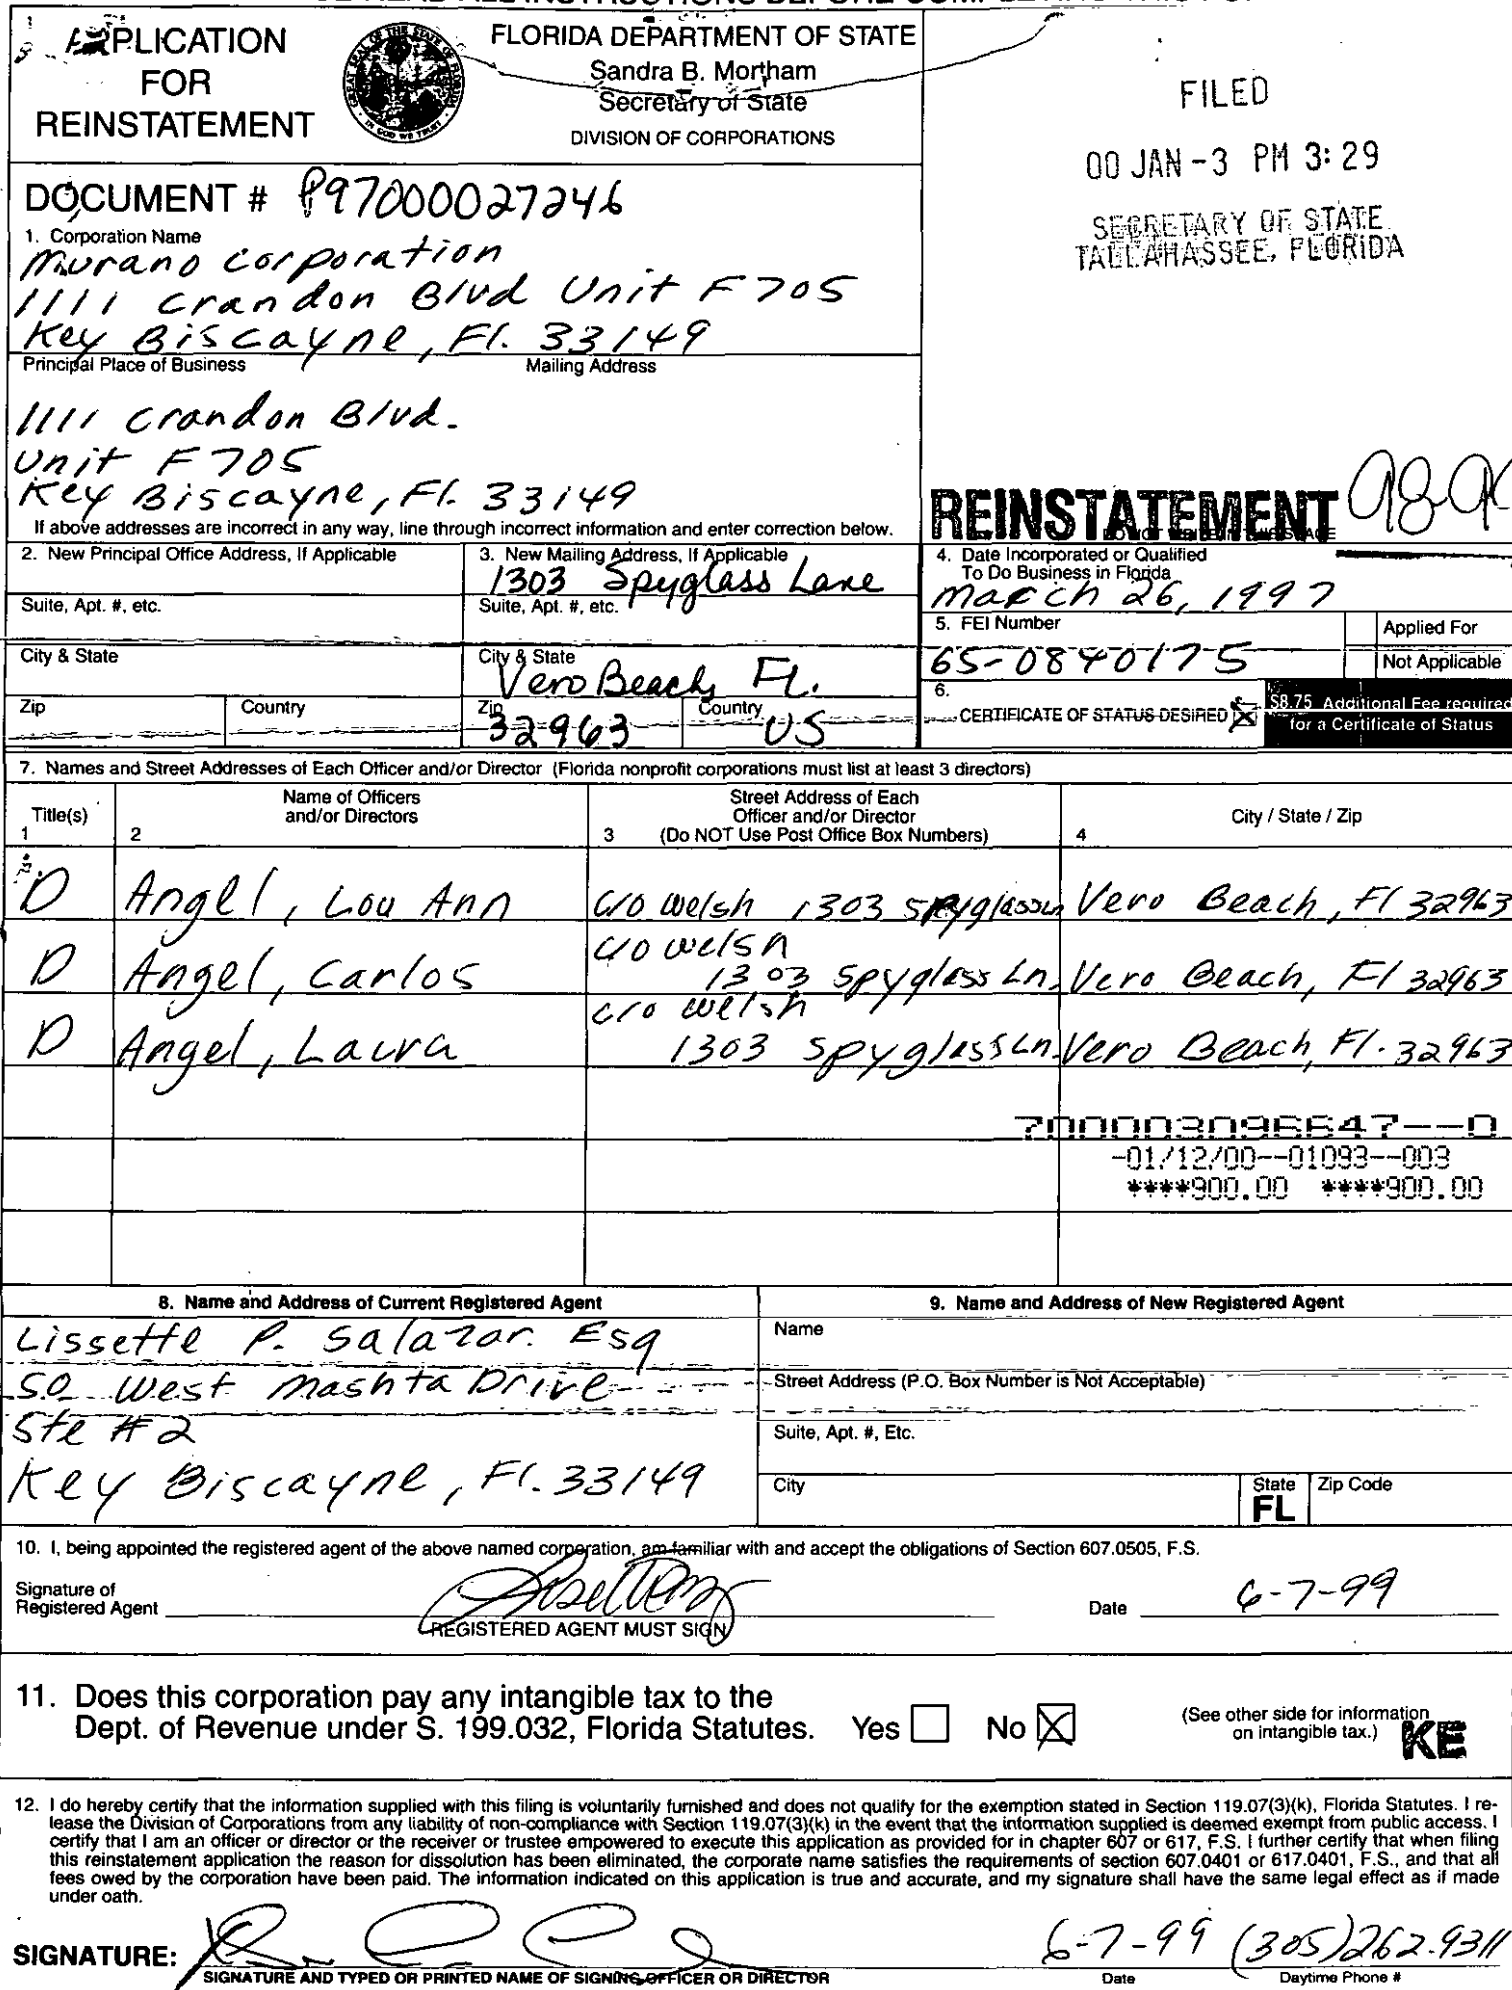 APPLICATION
FOR
REINSTATEMENT
FLORIDA DEPARTMENT OF STATE
Sandra B. Mortham
Secretary of State
DIVISION OF CORPORATIONS
FILED
00 JAN -3 PM 3:29
SECRETARY OF STATE
TALLAHASSEE, FLORIDA
DOCUMENT # P97000027246
1. Corporation Name
Murano Corporation
1111 Crandon Blvd Unit F705
Key Biscayne, Fl. 33149
Principal Place of Business Mailing Address
1111 Crandon Blvd.
Unit F705
Key Biscayne, Fl. 33149
If above addresses are incorrect in any way, line through incorrect information and enter correction below.
REINSTATEMENT
2. New Principal Office Address, If Applicable
Suite, Apt. #, etc.
City & State
Zip Country
3. New Mailing Address, If Applicable
1303 Spyglass Lane
Suite, Apt. #, etc.
City & State
Vero Beach, FL.
Zip Country
32963 US
4. Date Incorporated or Qualified
To Do Business in Florida
March 26, 1997
5. FEI Number
65-0840175
Applied For
Not Applicable
6.
CERTIFICATE OF STATUS DESIRED
$8.75 Additional Fee required
for a Certificate of Status
7. Names and Street Addresses of Each Officer and/or Director (Florida nonprofit corporations must list at least 3 directors)
Title(s)
1
Name of Officers
and/or Directors
2
Street Address of Each
Officer and/or Director
3 (Do NOT Use Post Office Box Numbers)
City / State / Zip
4
D Angel, Lou Ann c/o Welsh 1303 Spyglass Ln Vero Beach, Fl 32963
c/o Welsh
D Angel, Carlos 1303 Spyglass Ln. Vero Beach, Fl 32963
c/o Welsh
D Angel, Laura 1303 Spyglass Ln. Vero Beach, Fl. 32963
700003096647--0
-01/12/00--01093--003
****900.00 ****900.00
8. Name and Address of Current Registered Agent
Lissette P. Salazar. Esq
50 West Mashta Drive
Ste #2
Key Biscayne, Fl. 33149
9. Name and Address of New Registered Agent
Name
Street Address (P.O. Box Number is Not Acceptable)
Suite, Apt. #, Etc.
City
State
FL
Zip Code
10. I, being appointed the registered agent of the above named corporation, am familiar with and accept the obligations of Section 607.0505, F.S.
Signature of
Registered Agent
REGISTERED AGENT MUST SIGN
Date 6-7-99
11. Does this corporation pay any intangible tax to the
Dept. of Revenue under S. 199.032, Florida Statutes. Yes No
(See other side for information
on intangible tax.)
KE
12. I do hereby certify that the information supplied with this filing is voluntarily furnished and does not qualify for the exemption stated in Section 119.07(3)(k), Florida Statutes. I re-
lease the Division of Corporations from any liability of non-compliance with Section 119.07(3)(k) in the event that the information supplied is deemed exempt from public access. I
certify that I am an officer or director or the receiver or trustee empowered to execute this application as provided for in chapter 607 or 617, F.S. I further certify that when filing
this reinstatement application the reason for dissolution has been eliminated, the corporate name satisfies the requirements of section 607.0401 or 617.0401, F.S., and that all
fees owed by the corporation have been paid. The information indicated on this application is true and accurate, and my signature shall have the same legal effect as if made
under oath.
SIGNATURE: 6-7-99 (305)262-9311
SIGNATURE AND TYPED OR PRINTED NAME OF SIGNING OFFICER OR DIRECTOR Date Daytime Phone #